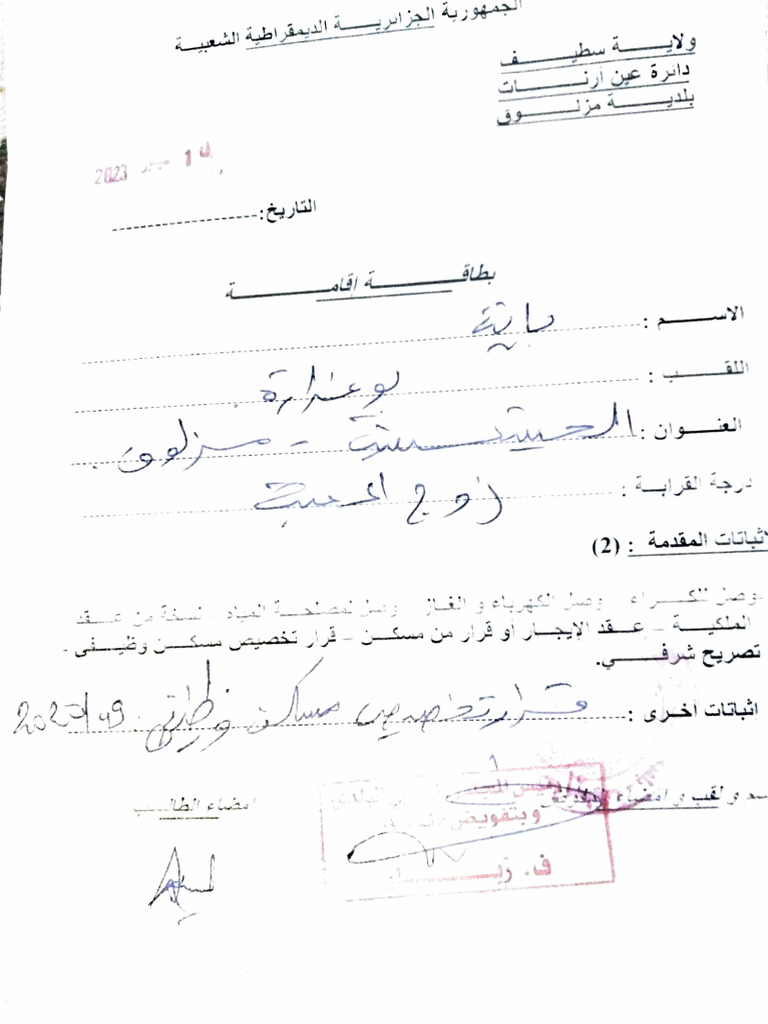 الجمهورية الجزائرية الديمقراطية الشعبية
ولاية سطيف
دائرة عين أرنات
بلدية مزلوق
2023
التاريخ:
بطاقة اقامة
الاسم : باية
اللقب : بوغرارة
العنوان : الحيتسية - مزلوق
درجة القرابة : زوج المعنية
اثباتات المقدمة : (2)
-وصل للكراء - وصل الكهرباء و الغاز - وصل لمصلحة المياه - نسخة من عقد
الملكية - عقد الإيجار أو قرار من مسكن - قرار تخصيص مسكن وظيفى -
تصريح شرفي.
اثباتات أخرى : قرار تخصيص مسكن وظيفي
اسم و لقب و امضاء
امضاء الطالب
رئيس
و بتفويض منه
ف. زيا